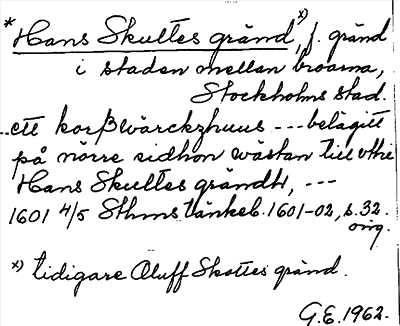 * Hans Skultes gränd, x) f. gränd
i staden mellan broarna,
Stockholms stad.
...ett korßwärckzhuus --- belägitt
på nörre sidhon wästan till vthi
Hans Skultes grändh, ---
1601 4/5 Sthms tänkeb. 1601-02, s. 32.
orig.
x) tidigare Oluff Skottes gränd.
G.E. 1962.